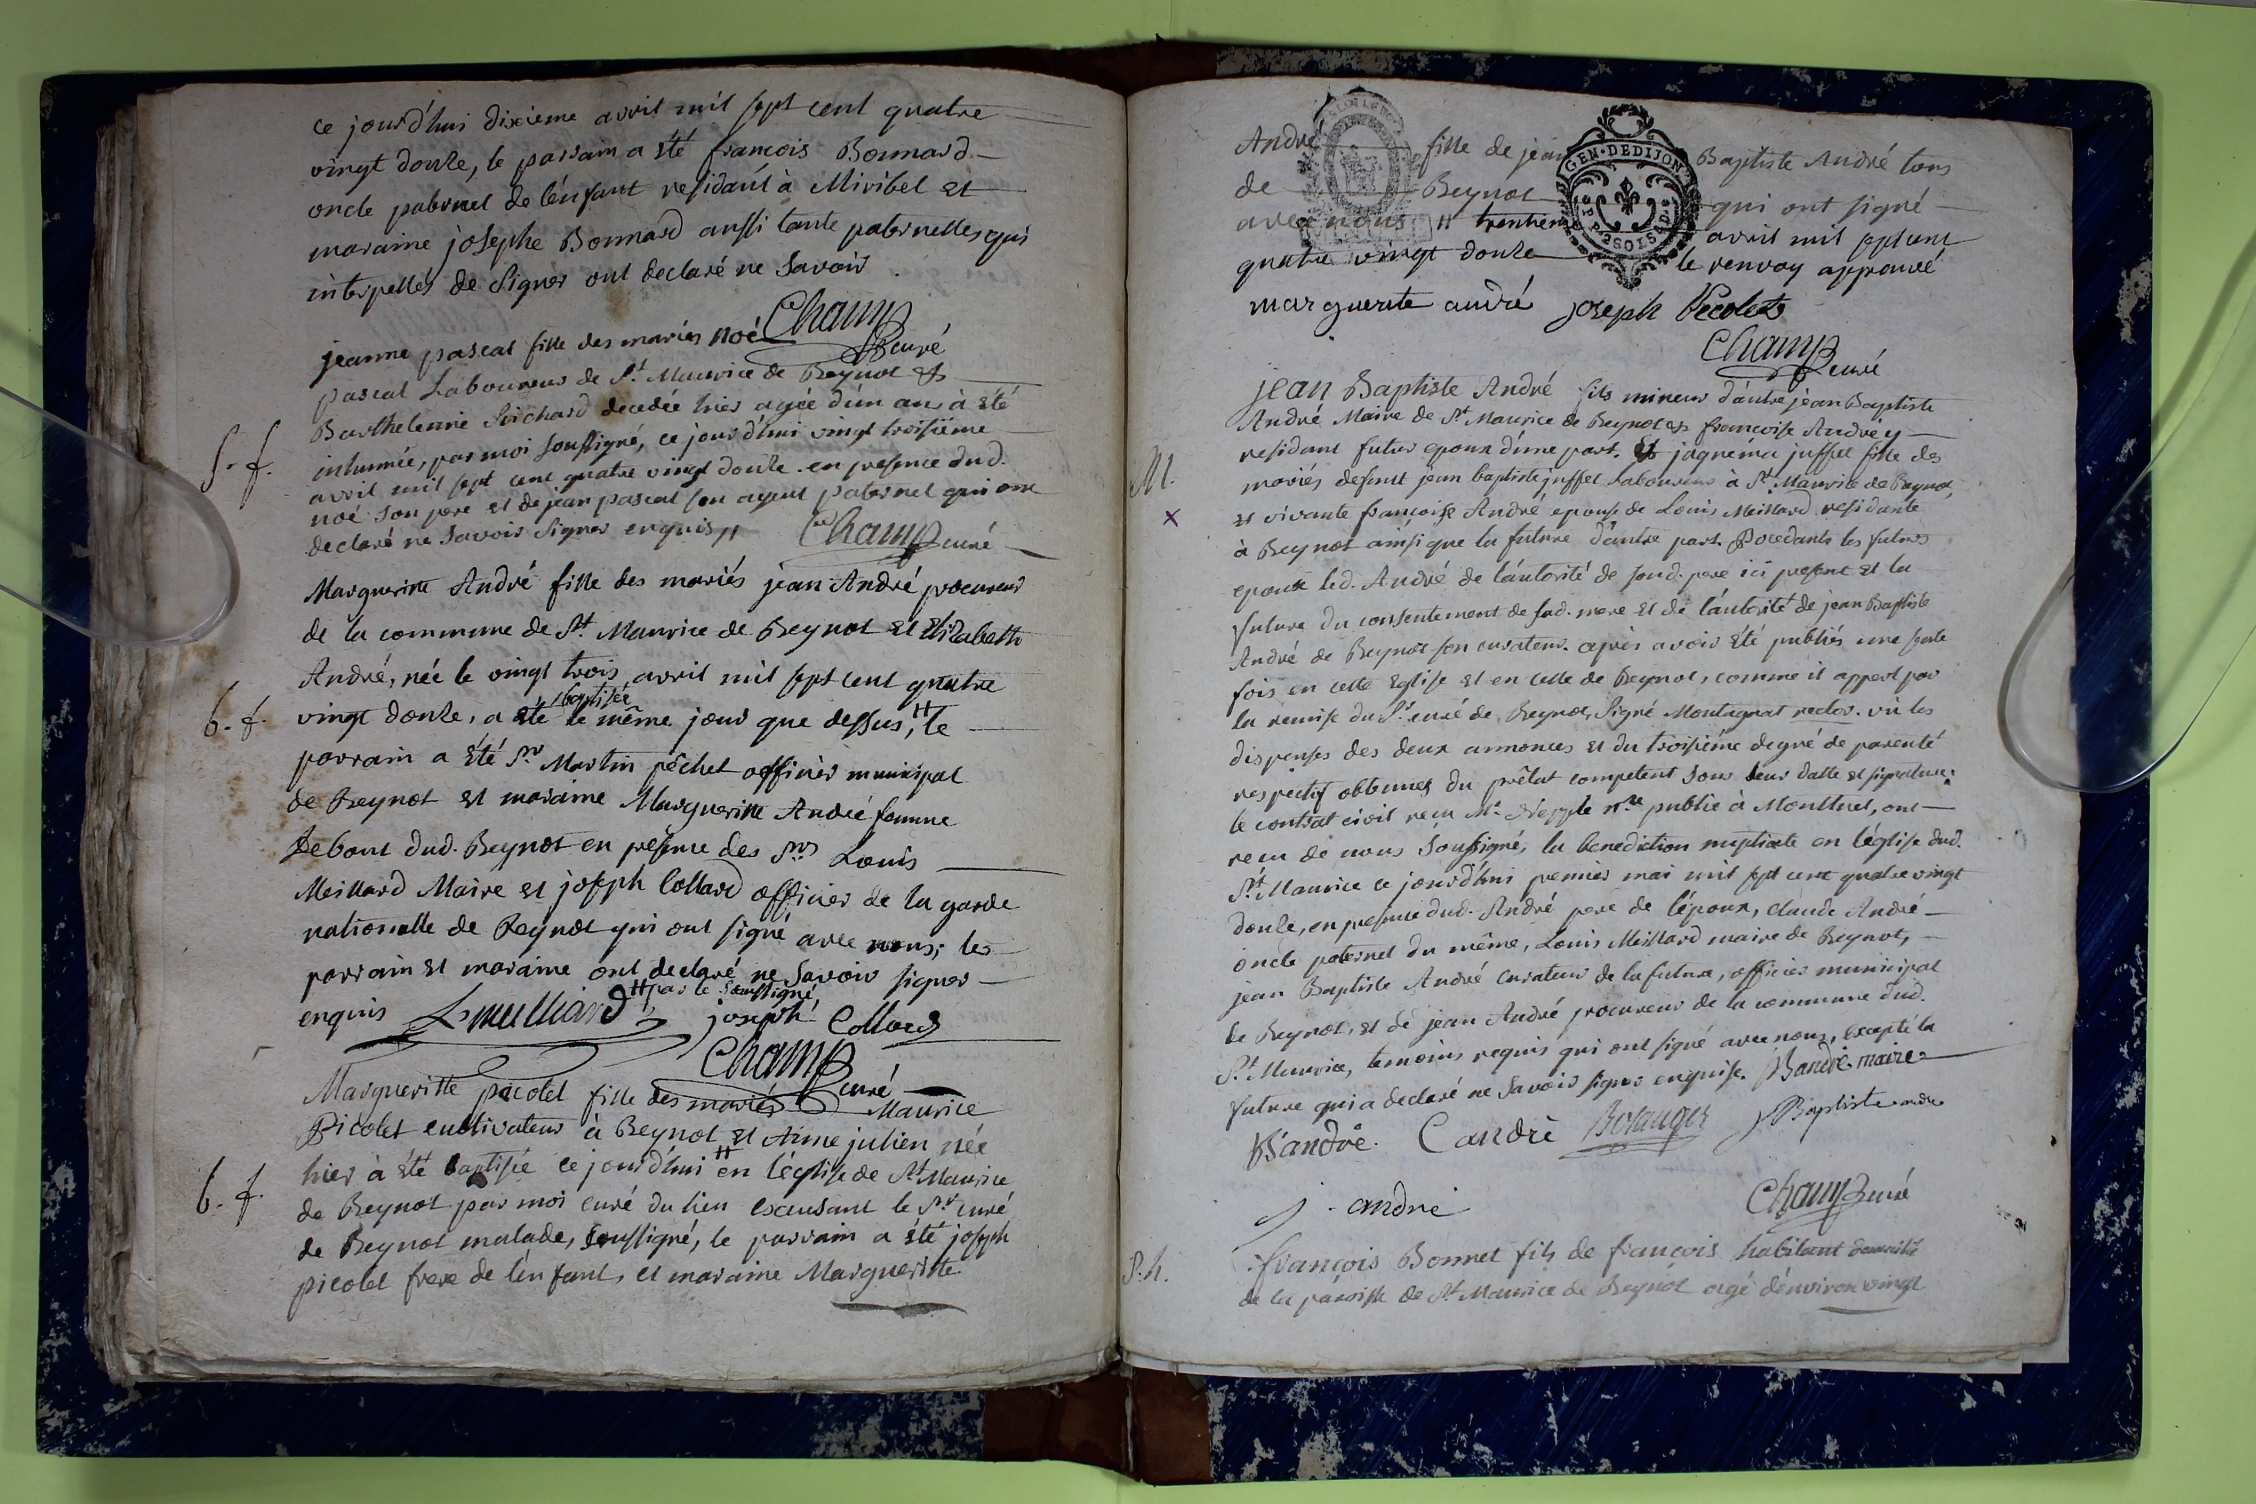 ce jourd'hui dixieme avril mil sept cent quatre
vingt douze, le parrain a été françois Bonnard
oncle paternel de l'enfant residant à Miribel et
maraine josephe Bonnard aussi tante paternelle, qui
interpellés de signer ont declaré ne savoir
Champ curé
jeanne pascal fille des mariés noé
pascal Laboureur de St. Maurice de Beynot et
S. f.
Barthelemie Richard decedée hier agée d'un an, à été
inhumée, par moi soussigné, ce jourd'hui vingt troisiéme
avril mil sept cent quatre vingt douze. en presence dud.
noé son pere et de jean pascal son ayeul paternel qui ont
declaré ne savoir signer enquis //
Champ curé
Margueritte André fille des mariés jean André procureur
de la commune de St. Maurice de Beynot et Elizabeth
André, née le vingt trois avril mil sept cent quatre
b. f.
vingt douze, a été baptisée le même jour que dessus, H le
parrain a été Sr. Martin pêchet officier municipal
de Beynot et maraine Margueritte André femme
Debout dud. Beynot en presence des Srs Louis
Meillard Maire et joseph Collard officier de la garde
nationalle de Beynot qui ont signé avec nous; les
parrain et maraine ont declaré ne savoir signer
enquis H par le soussigné
L meilliard joseph Collard
Champ curé
Margueritte picolet fille des mariés Maurice
Picolet cultivateur à Beynot et Aime julien née
b. f.
hier à été baptisée ce jourd'hui H en l'église de St. Maurice
de Beynot par moi curé du lieu excusant le Sr. curé
de Beynot malade, soussigné, le parrain a été joseph
picolet frere de l'enfant, et maraine Margueritte
André fille de jean Baptiste André tous
GEN. DE DIJON
de Beynot qui ont signé
avec nous H trentieme avril mil sept cent
quatre vingt douze le renvoy approuvé
marguerite andré joseph Picolet
Champ curé
jean Baptiste André fils mineur d'autre jean Baptiste
André Maire de St. Maurice de Beynot et françoise André y
residant futur epoux d'une part. Et jaqnéma juffet fille des
M.
mariés defunt jean baptiste juffet Laboureur à St. Maurice de Beynot,
x
et vivante françoise André epouse de Louis Meillard residante
à Beynot ainsi que la future d'autre part. Procedants les futurs
epoux led. André de l'autorité de sond. pere ici present et la
future du consentement de sad. mere et de l'autorité de jean Baptiste
André de Beynot son curateur. après avoir été publiés une seule
fois en cette Eglise et en celle de Beynot, comme il appert par
la remise du Sr. curé de Beynot, signé Montagnat rector. vu les
dispenses des deux annonces et du troisiéme degré de parenté
respectif obtenues du prêlat competent sous leur datte et signature:
le contrat civil recu Me. Nepple nre. public à Montluel, ont
recu de nous soussigné, la benediction nuptiale en l'église dud.
St. Maurice ce jourd'hui premier mai mil sept cent quatre vingt
douze, en presence dud. André pere de l'époux, claude André
oncle paternel du même, Louis Meillard maire de Beynot,
jean Baptiste André curateur de la future, officier municipal
de Beynot, et de jean André procureur de la commune dud.
St. Maurice, temoins requis qui ont signé avec nous, excepté la
future qui a declaré ne savoir signer enquise. B andré maire
B andré. C andré J Baptiste andré
j. andré Champ curé
françois Bonnet fils de françois habitant
S. h.
de la paroisse de St. Maurice de Beynot agé d'environ vingt